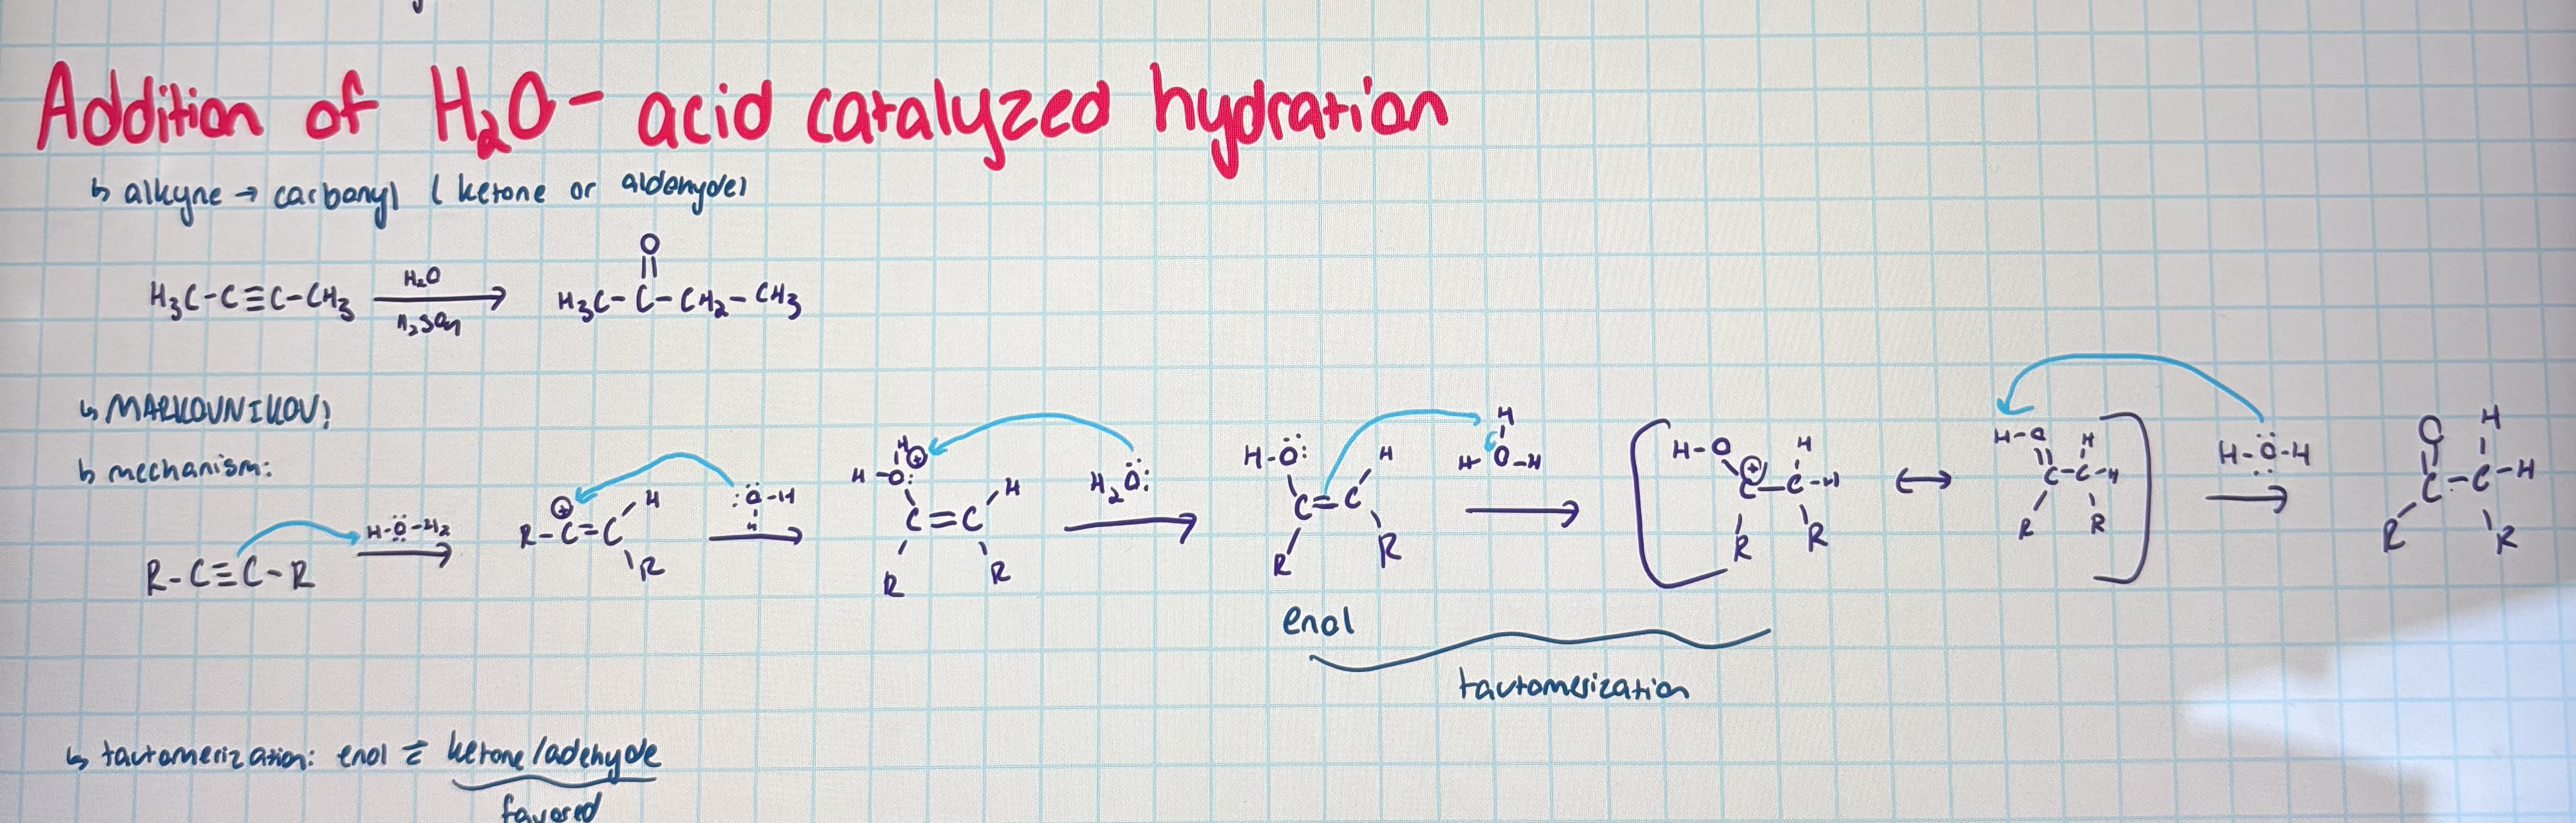 Addition of H₂O - acid catalyzed hydration
↳ alkyne → carbonyl (ketone or aldehyde)
O
H₂O
H₃C-C≡C-CH₃ → H₃C-C-CH₂-CH₃
H₂SO₄
↳ MARKOVNIKOV!
↳ mechanism:
R-C≡C-R
H-Ö-H₂
⊕
R-C=C
H
R
:Ö-H
H
H
⊕
H-O:
C=C
H
R
R
H₂Ö:
H-Ö:
C=C
H
R
R
H
H-O-H
H-O
⊕
C-C-H
H
R
R
↔
H-O
C-C-H
H
R
R
H-Ö-H
O
H
C-C-H
R
R
enol
tautomerization
↳ tautomerization: enol ⇌ ketone/adehyde
favored